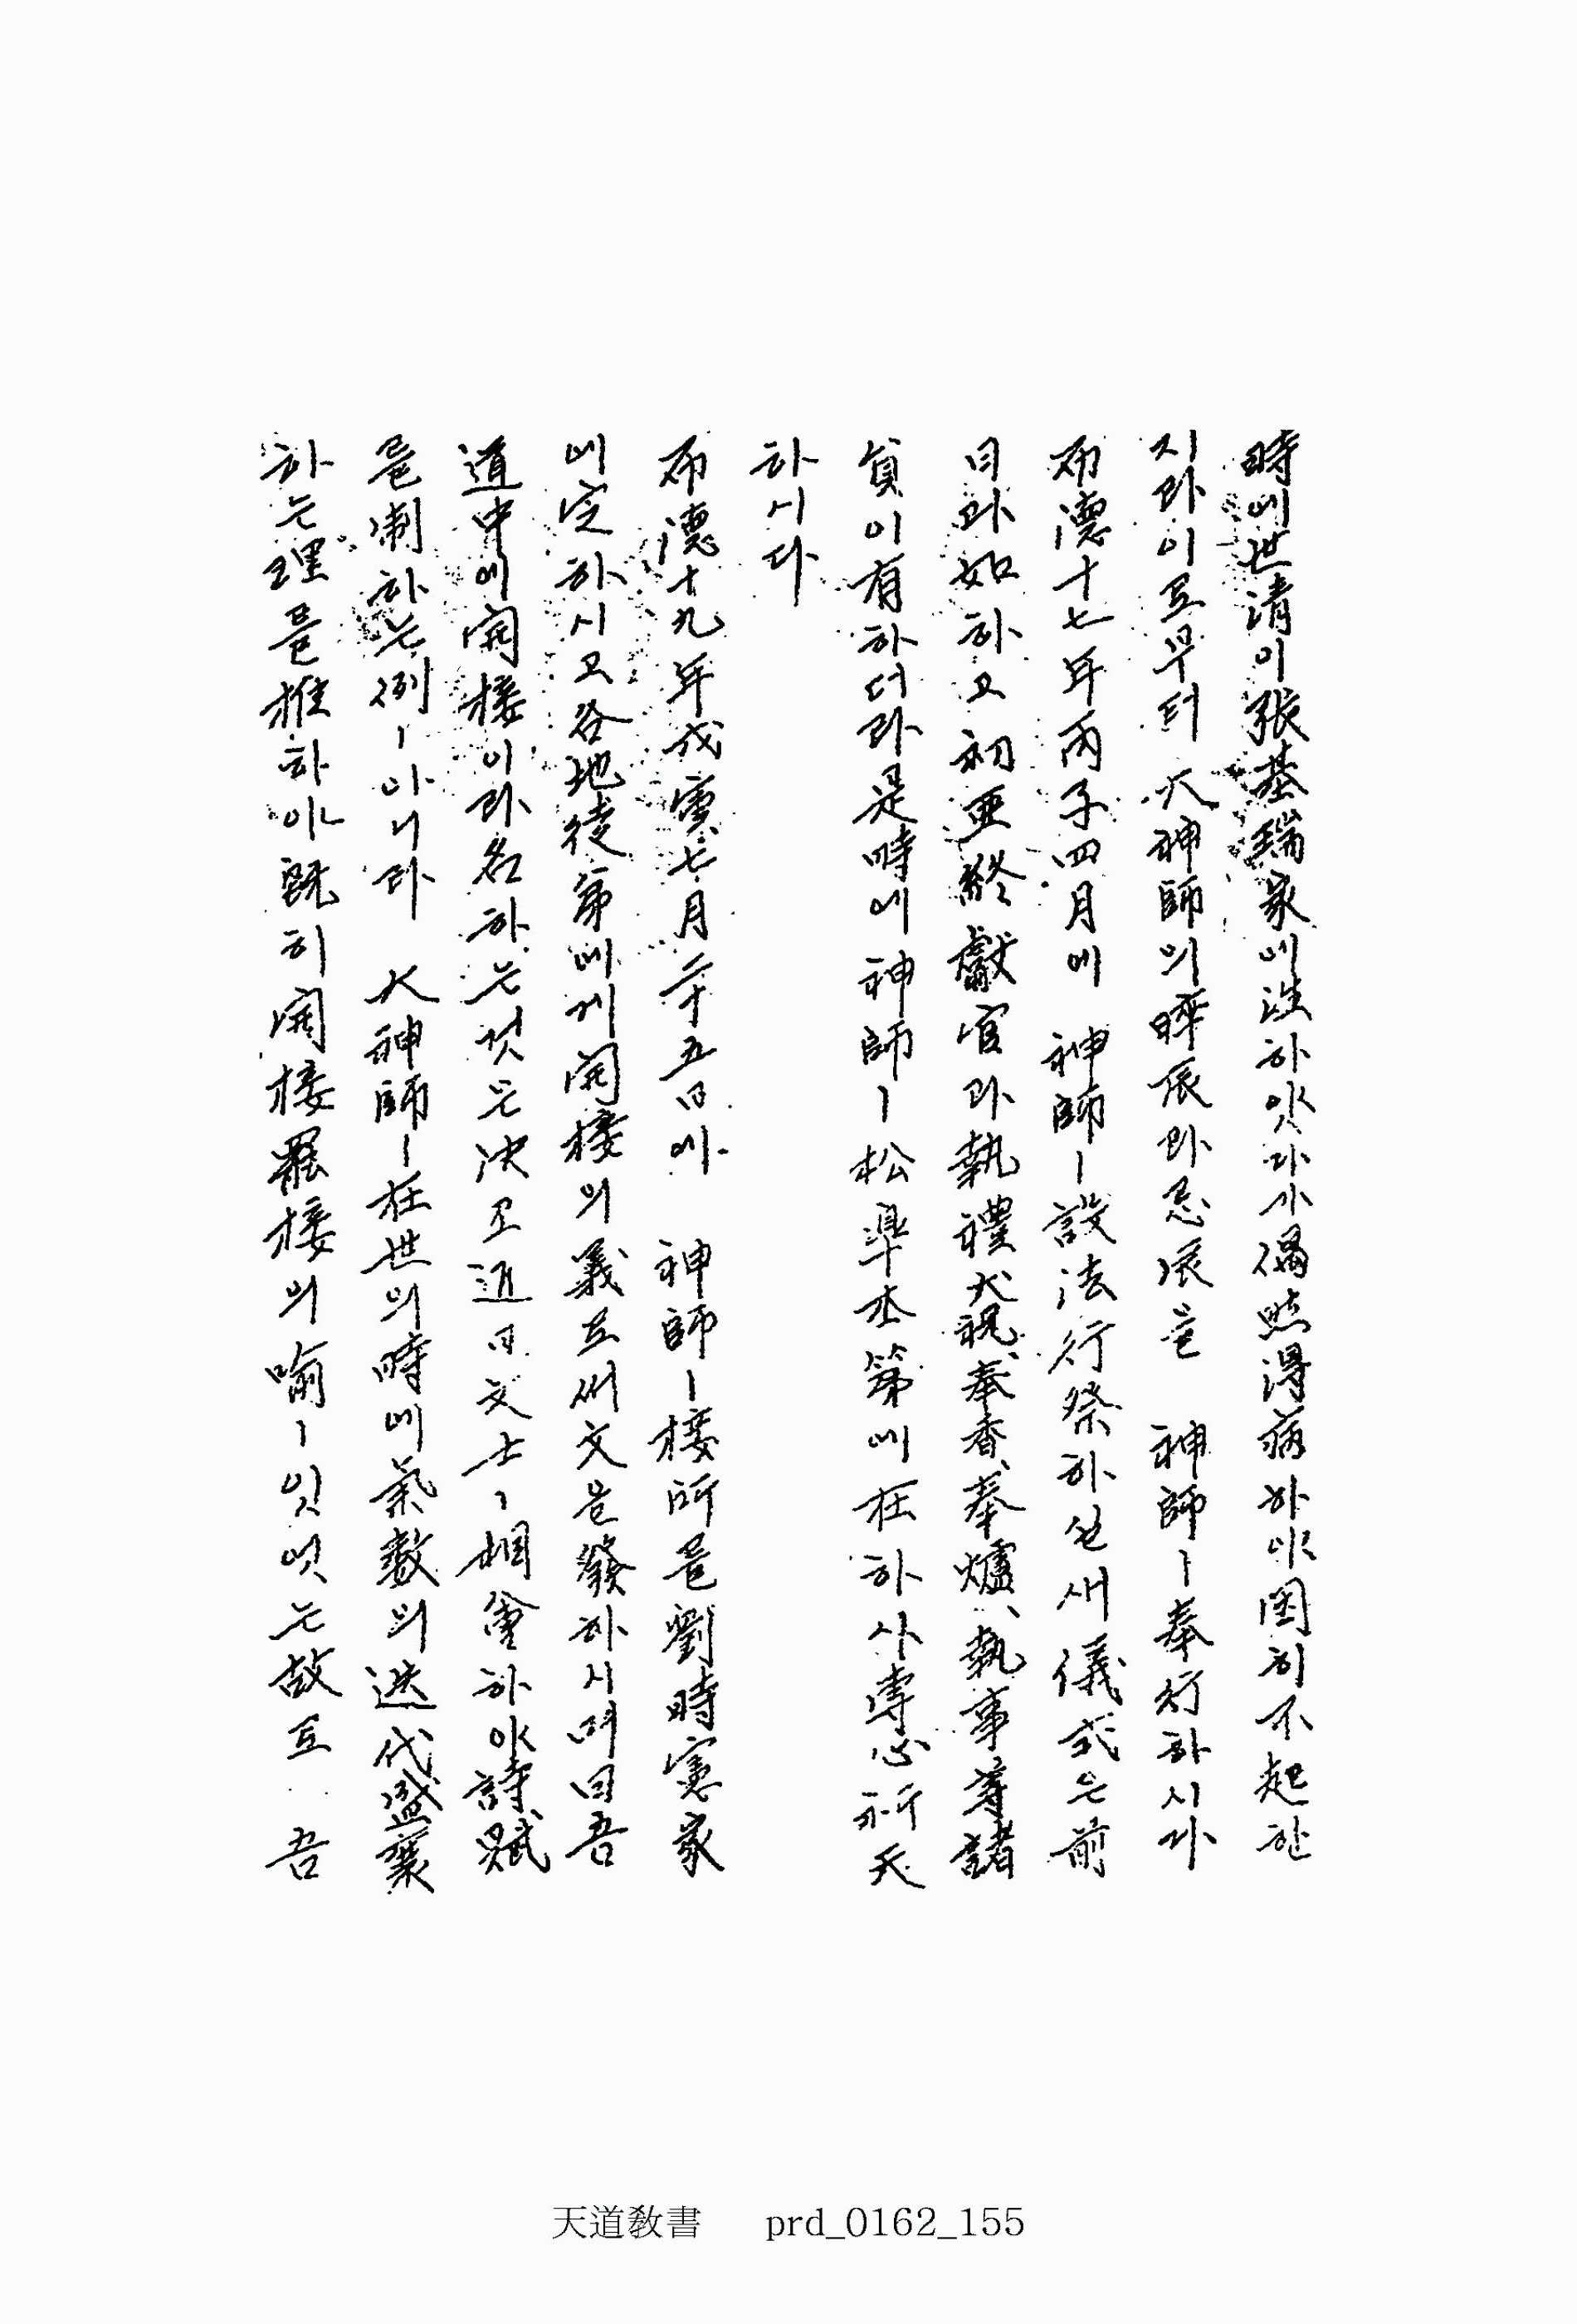 時에世淸이張基瑞家에往하얏다가偶然得病하야因히不起한
지라이로부터 大神師의晬辰과忌辰을 神師ㅣ奉行하시다
布德十七年丙子四月에 神師ㅣ設法行祭하실새儀式은前
日과如하고初亞終獻官과執禮、大祝、奉香、奉爐、執事等諸
員이有하더라是時에神師ㅣ松皐本第에在하사專心祈天
하시다
布德十九年戊寅七月二十五日에 神師ㅣ接所를劉時憲家
에定하시고各地徒弟에게開接의義로써文을發하시며曰吾
道中에開接이라名하는것은決코近日文士ㅣ相會하야詩賦
를制하는例ㅣ아니라 大神師ㅣ在世의時에氣數의迭代盛衰
하는理를推하야旣히開接罷接의喩ㅣ잇엇는故로 吾
天道敎書 prd_0162_155